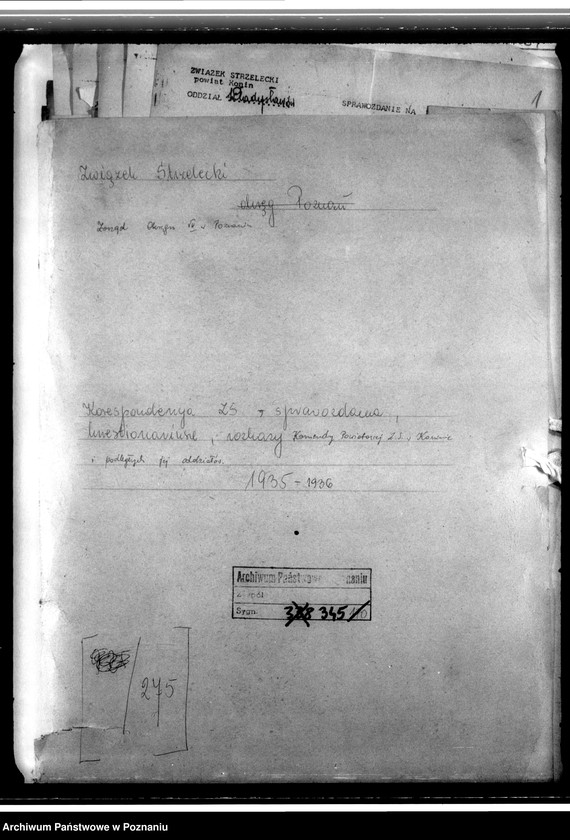 ZWIĄZEK STRZELECKI
powiat Konin
ODDZIAŁ Władysławów
SPRAWOZDANIE NA
1
Związek Strzelecki
okręg Poznań
Zarząd Okręgu VII w Poznaniu
Korespondencja ZS, sprawozdania,
kwestionariusze, rozkazy Komendy Powiatowej Z.S. w Koninie
i podległych jej oddziałów.
1935 - 1936
Archiwum Państwowe naniu
Sygn. 345
275
Archiwum Państwowe w Poznaniu